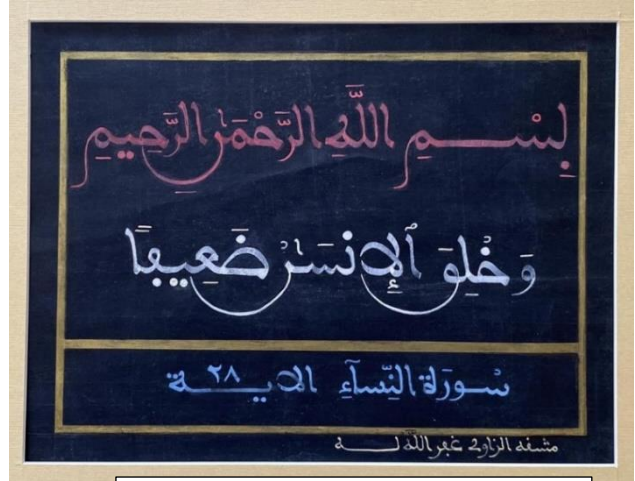 بِسْمِ اللَّهِ الرَّحْمَٰنِ الرَّحِيمِ
وَخُلِقَ ٱلْإِنسَٰنُ ضَعِيفًا
سُورَةُ النِّسَآءِ الآيـــة ٢٨
الزاوي غفر الله لـــه